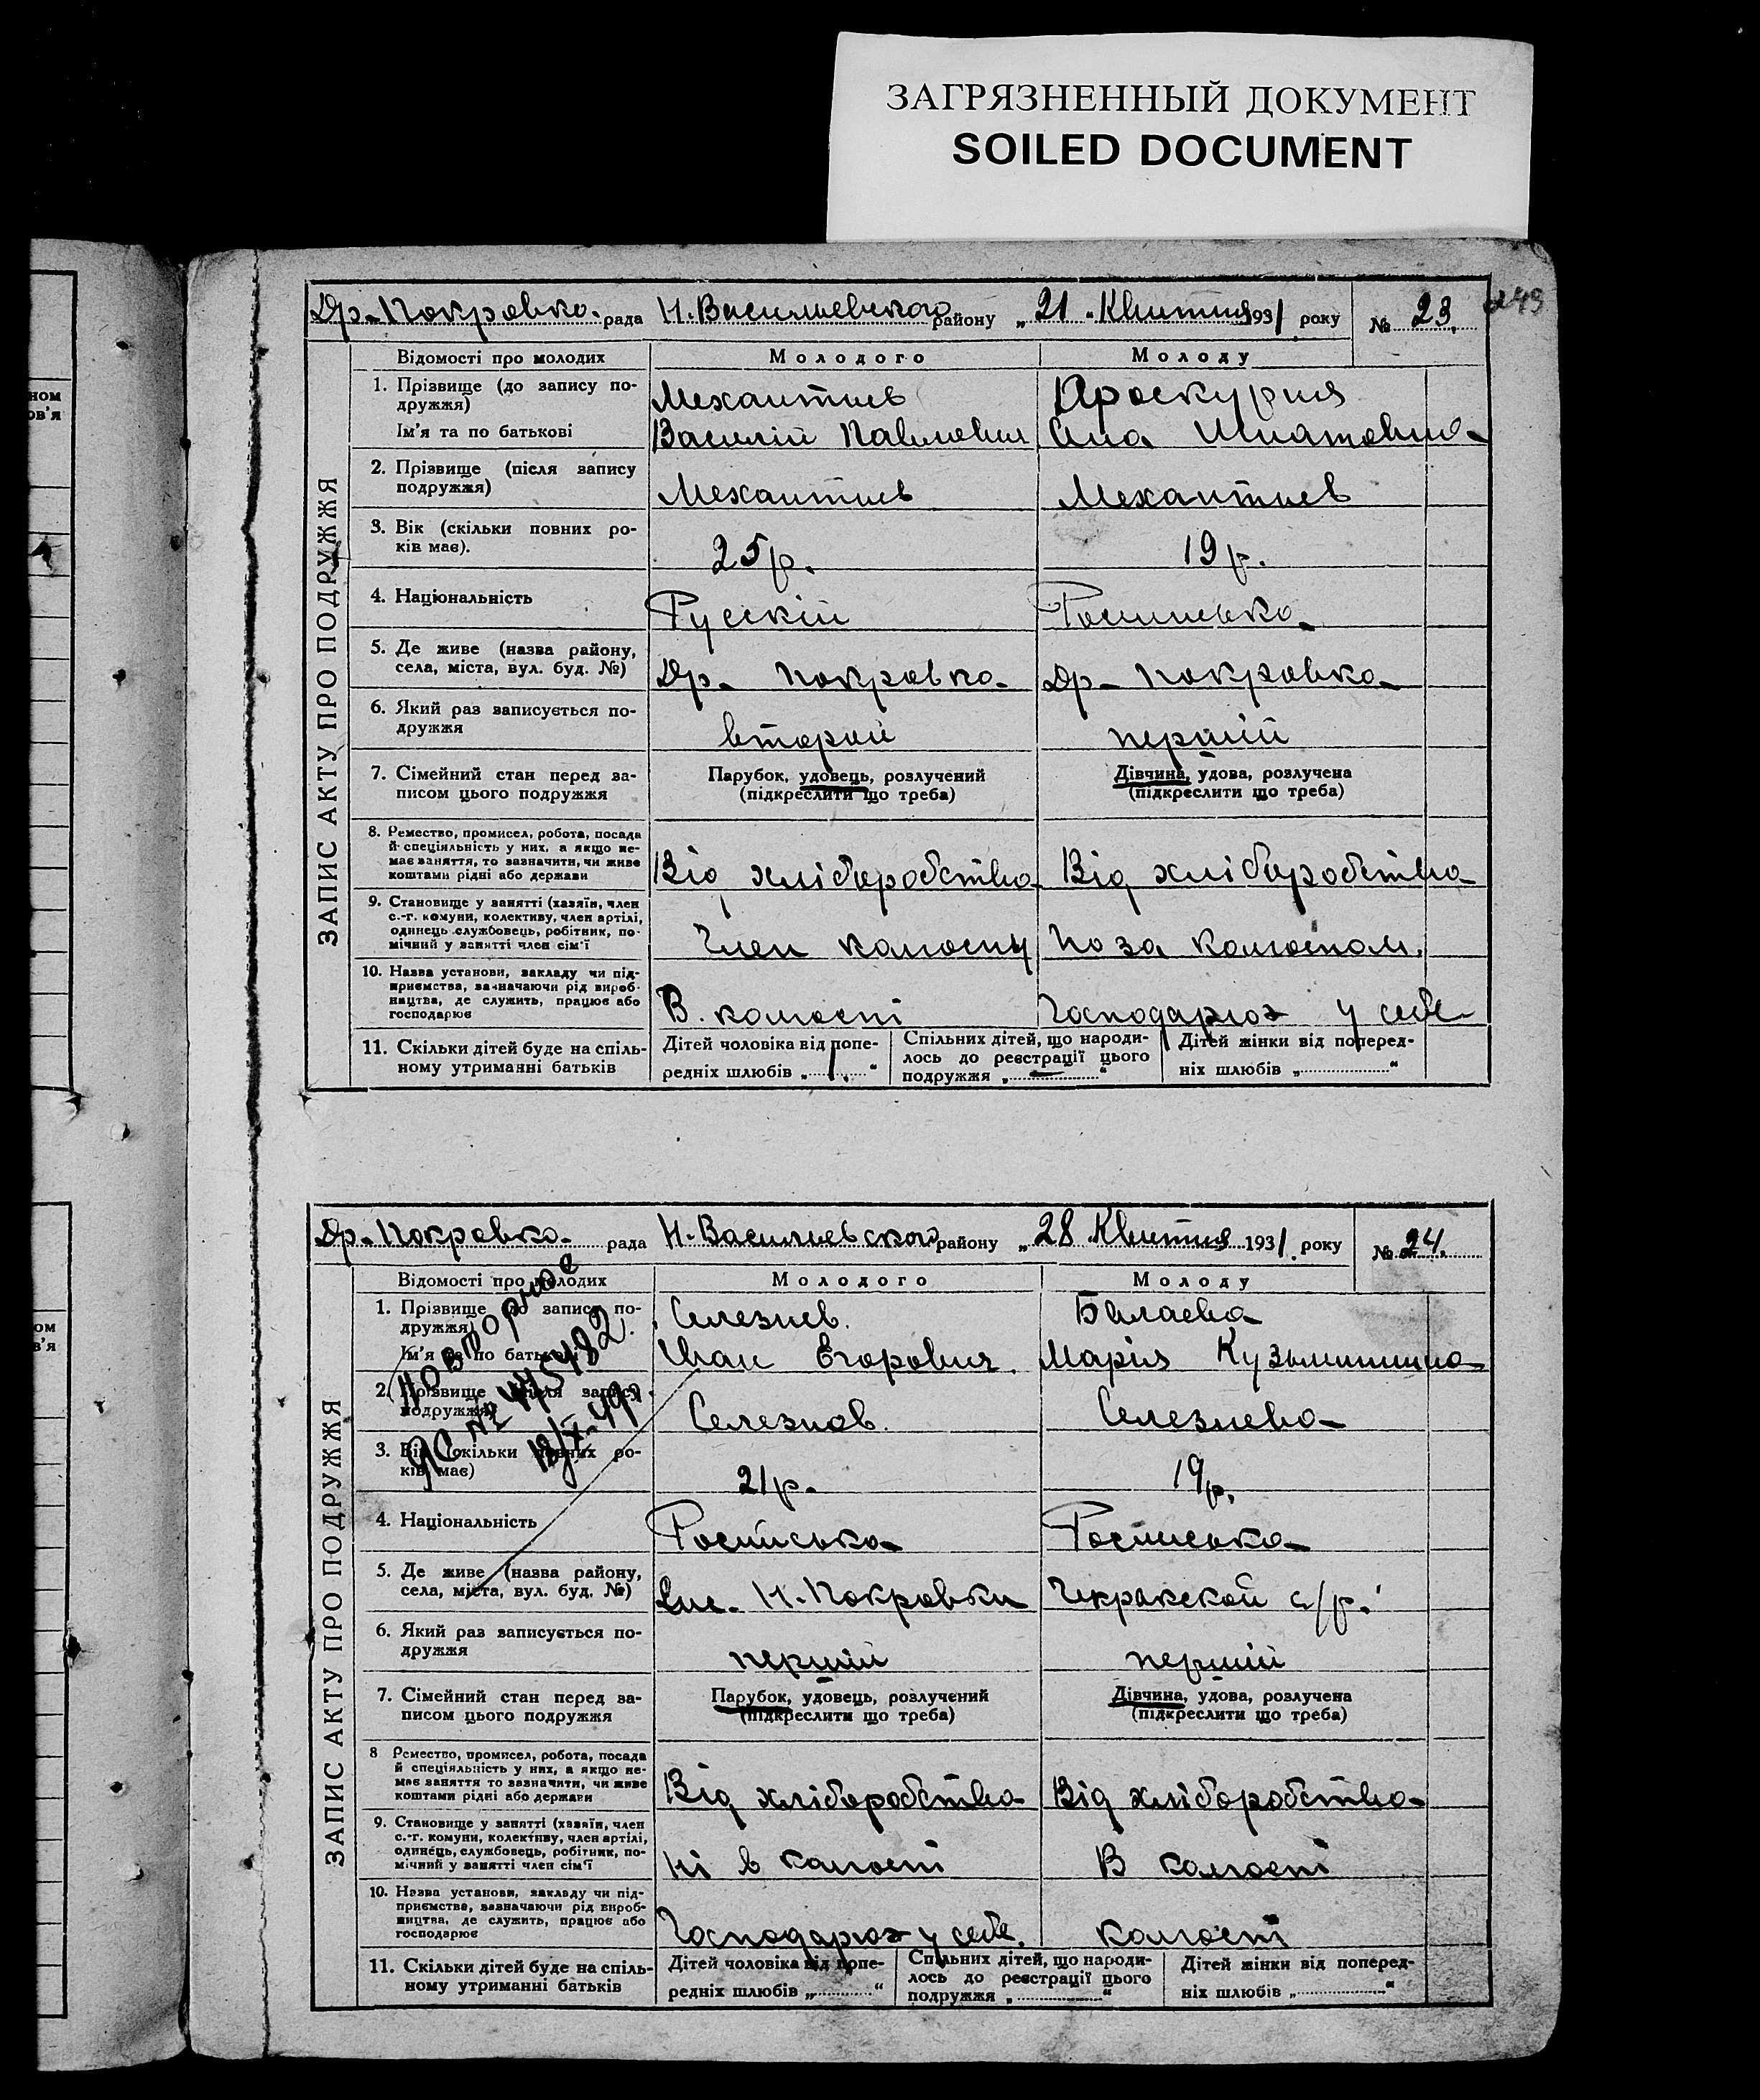 ЗАГРЯЗНЕННЫЙ ДОКУМЕНТ
SOILED DOCUMENT
ном
ов'я
ом
в'я
249
ЗАПИС АКТУ ПРО ПОДРУЖЖЯ
Др-Покровка. рада Н.Васильевского району „21" Квитня 1931 року № 23.
Відомості про молодих Молодого Молоду
1. Прізвище (до запису по- Механтиев Проскурня
дружжя)
Ім'я та по батькові Василій Павлович Ігнатовна
2. Прізвище (після запису
подружжя) Механтиев Механтиев
3. Вік (скільки повних ро-
ків має). 25 р. 19 р.
4. Національність Русскій
5. Де живе (назва району,
села, міста, вул. буд. №) Др- Покровка- Др- Покровка-
6. Який раз записується по-
дружжя второй першій
7. Сімейний стан перед за- Парубок, удовець, розлучений Дівчина, удова, розлучена
писом цього подружжя (підкреслити що треба) (підкреслити що треба)
8. Ремество, промисел, робота, посада
й спеціяльність у них, а якщо не-
має заняття, то зазначити, чи живе
коштами рідні або держави Від хліборобства Від хліборобства
9. Становище у занятті (хазяїн, член
с.-г. комуни, колективу, член артілі,
одинець службовець, робітник, по-
мічний у занятті член сім'ї Член колоспу по за колгоспом.
10. Назва установи, закладу чи під-
приємства, зазначаючи рід вироб-
ництва, де служить, працює або
господарює В. колгоспі Господарює у себе
11. Скільки дітей буде на спіль-
ному утриманні батьків
Дітей чоловіка від попе-
редніх шлюбів „1."
Спільних дітей, що народи-
лось до реєстрації цього
подружжя „—"
Дітей жінки від поперед-
ніх шлюбів „"
ЗАПИС АКТУ ПРО ПОДРУЖЖЯ
Др-Покровка- рада Н.Васильевского району „28 Квитня 1931. року № 24.
Відомості про молодих Молодого Молоду
1. Прізвище до запису по- Селезнев. Балаева
дружжя)
Ім'я та по батькові Иван Егорович. Марія Кузьминишна
2. Прізвище після запису
подружжя) Селезнов. Селезнева
3. Вік (скільки повних ро-
ків має) 21 р. 19 р.
4. Національність Росийська Росийська
5. Де живе (назва району,
села, міста, вул. буд. №) Н.Покровки с/р.
6. Який раз записується по-
дружжя першій першій
7. Сімейний стан перед за- Парубок, удовець, розлучений Дівчина, удова, розлучена
писом цього подружжя (підкреслити що треба) (підкреслити що треба)
8 Ремество, промисел, робота, посада
й спеціяльність у них, а якщо не-
має заняття то зазначити, чи живе
коштами рідні або держави Від хліборобства Від хліборобства
9. Становище у занятті (хазяїн, член
с.-г. комуни, колективу, член артілі,
одинець, службовець, робітник, по-
мічний у занятті член сім'ї ні в колгоспі В колгоспі
10. Назва установи, закладу чи під-
приємства, зазначаючи рід вироб-
ництва, де служить, працює або
господарює Господарює у себе. колгоспі
11. Скільки дітей буде на спіль-
ному утриманні батьків
Дітей чоловіка від попе-
редніх шлюбів „"
Спільних дітей, що народи-
лось до реєстрації цього
подружжя „"
Дітей жінки від поперед-
ніх шлюбів „"
повторное